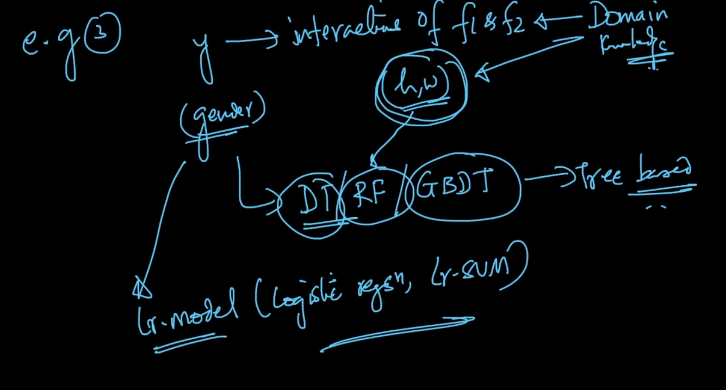 e.g ③ y → interactions of f1 & f2 ← Domain
knowledge
(h,w)
(gender)
DT / RF / GBDT → Tree based
lr-model (Logistic regsn, lr-SVM)